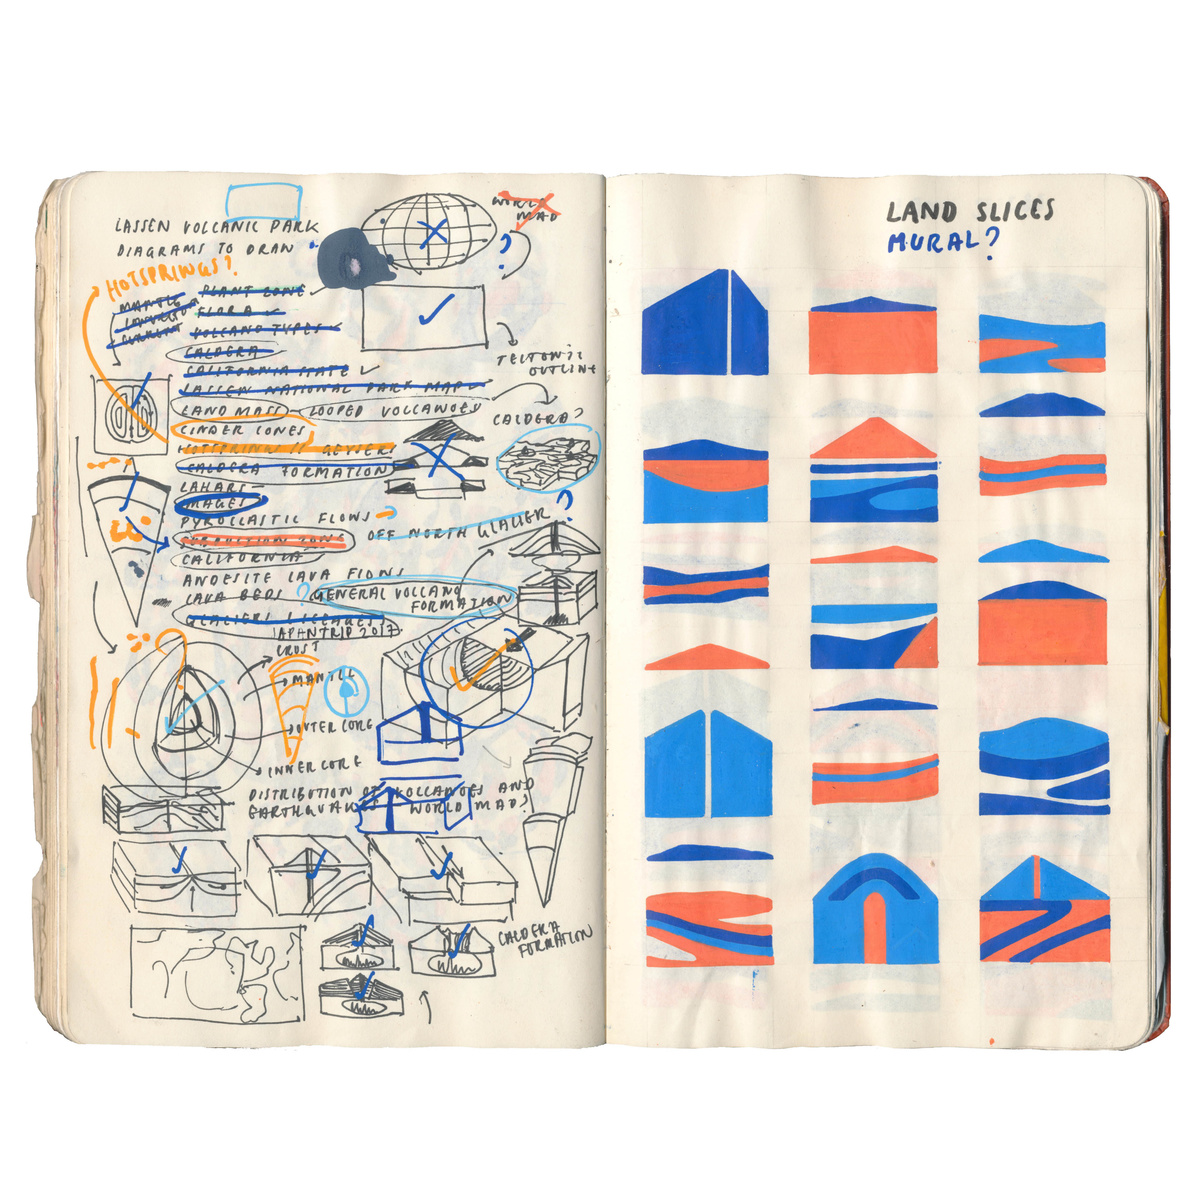 LASSEN VOLCANIC PARK
DIAGRAMS TO DRAW
HOTSPRINGS?
PLANT ZONE
MANTLE
FLORA
VOLCANO TYPES
CALDERA
CALIFORNIA STATE
LASSEN NATIONAL PARK MAP
LAND MASS - LOOPED VOLCANOES
CINDER CONES
HOTSPRINGS / GEYSERS
CALDERA FORMATION
LAHARS
IMAGES
PYROCLASTIC FLOWS
OFF NORTH GLACIER
CALIFORNIA
ANDESITE LAVA FLOWS
LAVA BEDS ? GENERAL VOLCANO
FORMATION
JAPAN TRIP 2017
WORLD
MAP
?
TECTONIC
OUTLINE
CALDERA?
?
CRUST
MANTLE
OUTER CORE
INNER CORE
DISTRIBUTION OF VOLCANOES AND
EARTHQUAKES WORLD MAP?
CALDERA
FORMATION
LAND SLICES
MURAL?